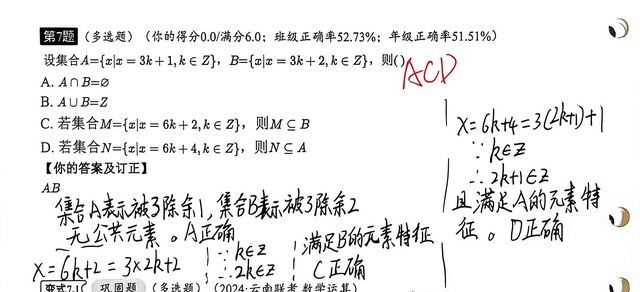 第7题 (多选题) (你的得分0.0/满分6.0; 班级正确率52.73%; 年级正确率51.51%)
设集合A={x|x=3k+1,k∈Z}, B={x|x=3k+2,k∈Z}, 则()
ACD
A. A∩B=∅
B. A∪B=Z
C. 若集合M={x|x=6k+2,k∈Z}, 则M⊆B
D. 若集合N={x|x=6k+4,k∈Z}, 则N⊆A
【你的答案及订正】
AB
集合A表示被3除余1,集合B表示被3除余2
无公共元素。A正确
x=6k+2=3×2k+2
∵k∈Z
∴2k∈Z
满足B的元素特征
C正确
x=6k+4=3(2k+1)+1
∵k∈Z
∴2k+1∈Z
且满足A的元素特
征。D正确
变式7-1 巩固题 (多选题) (2024·云南联考·数学运算)